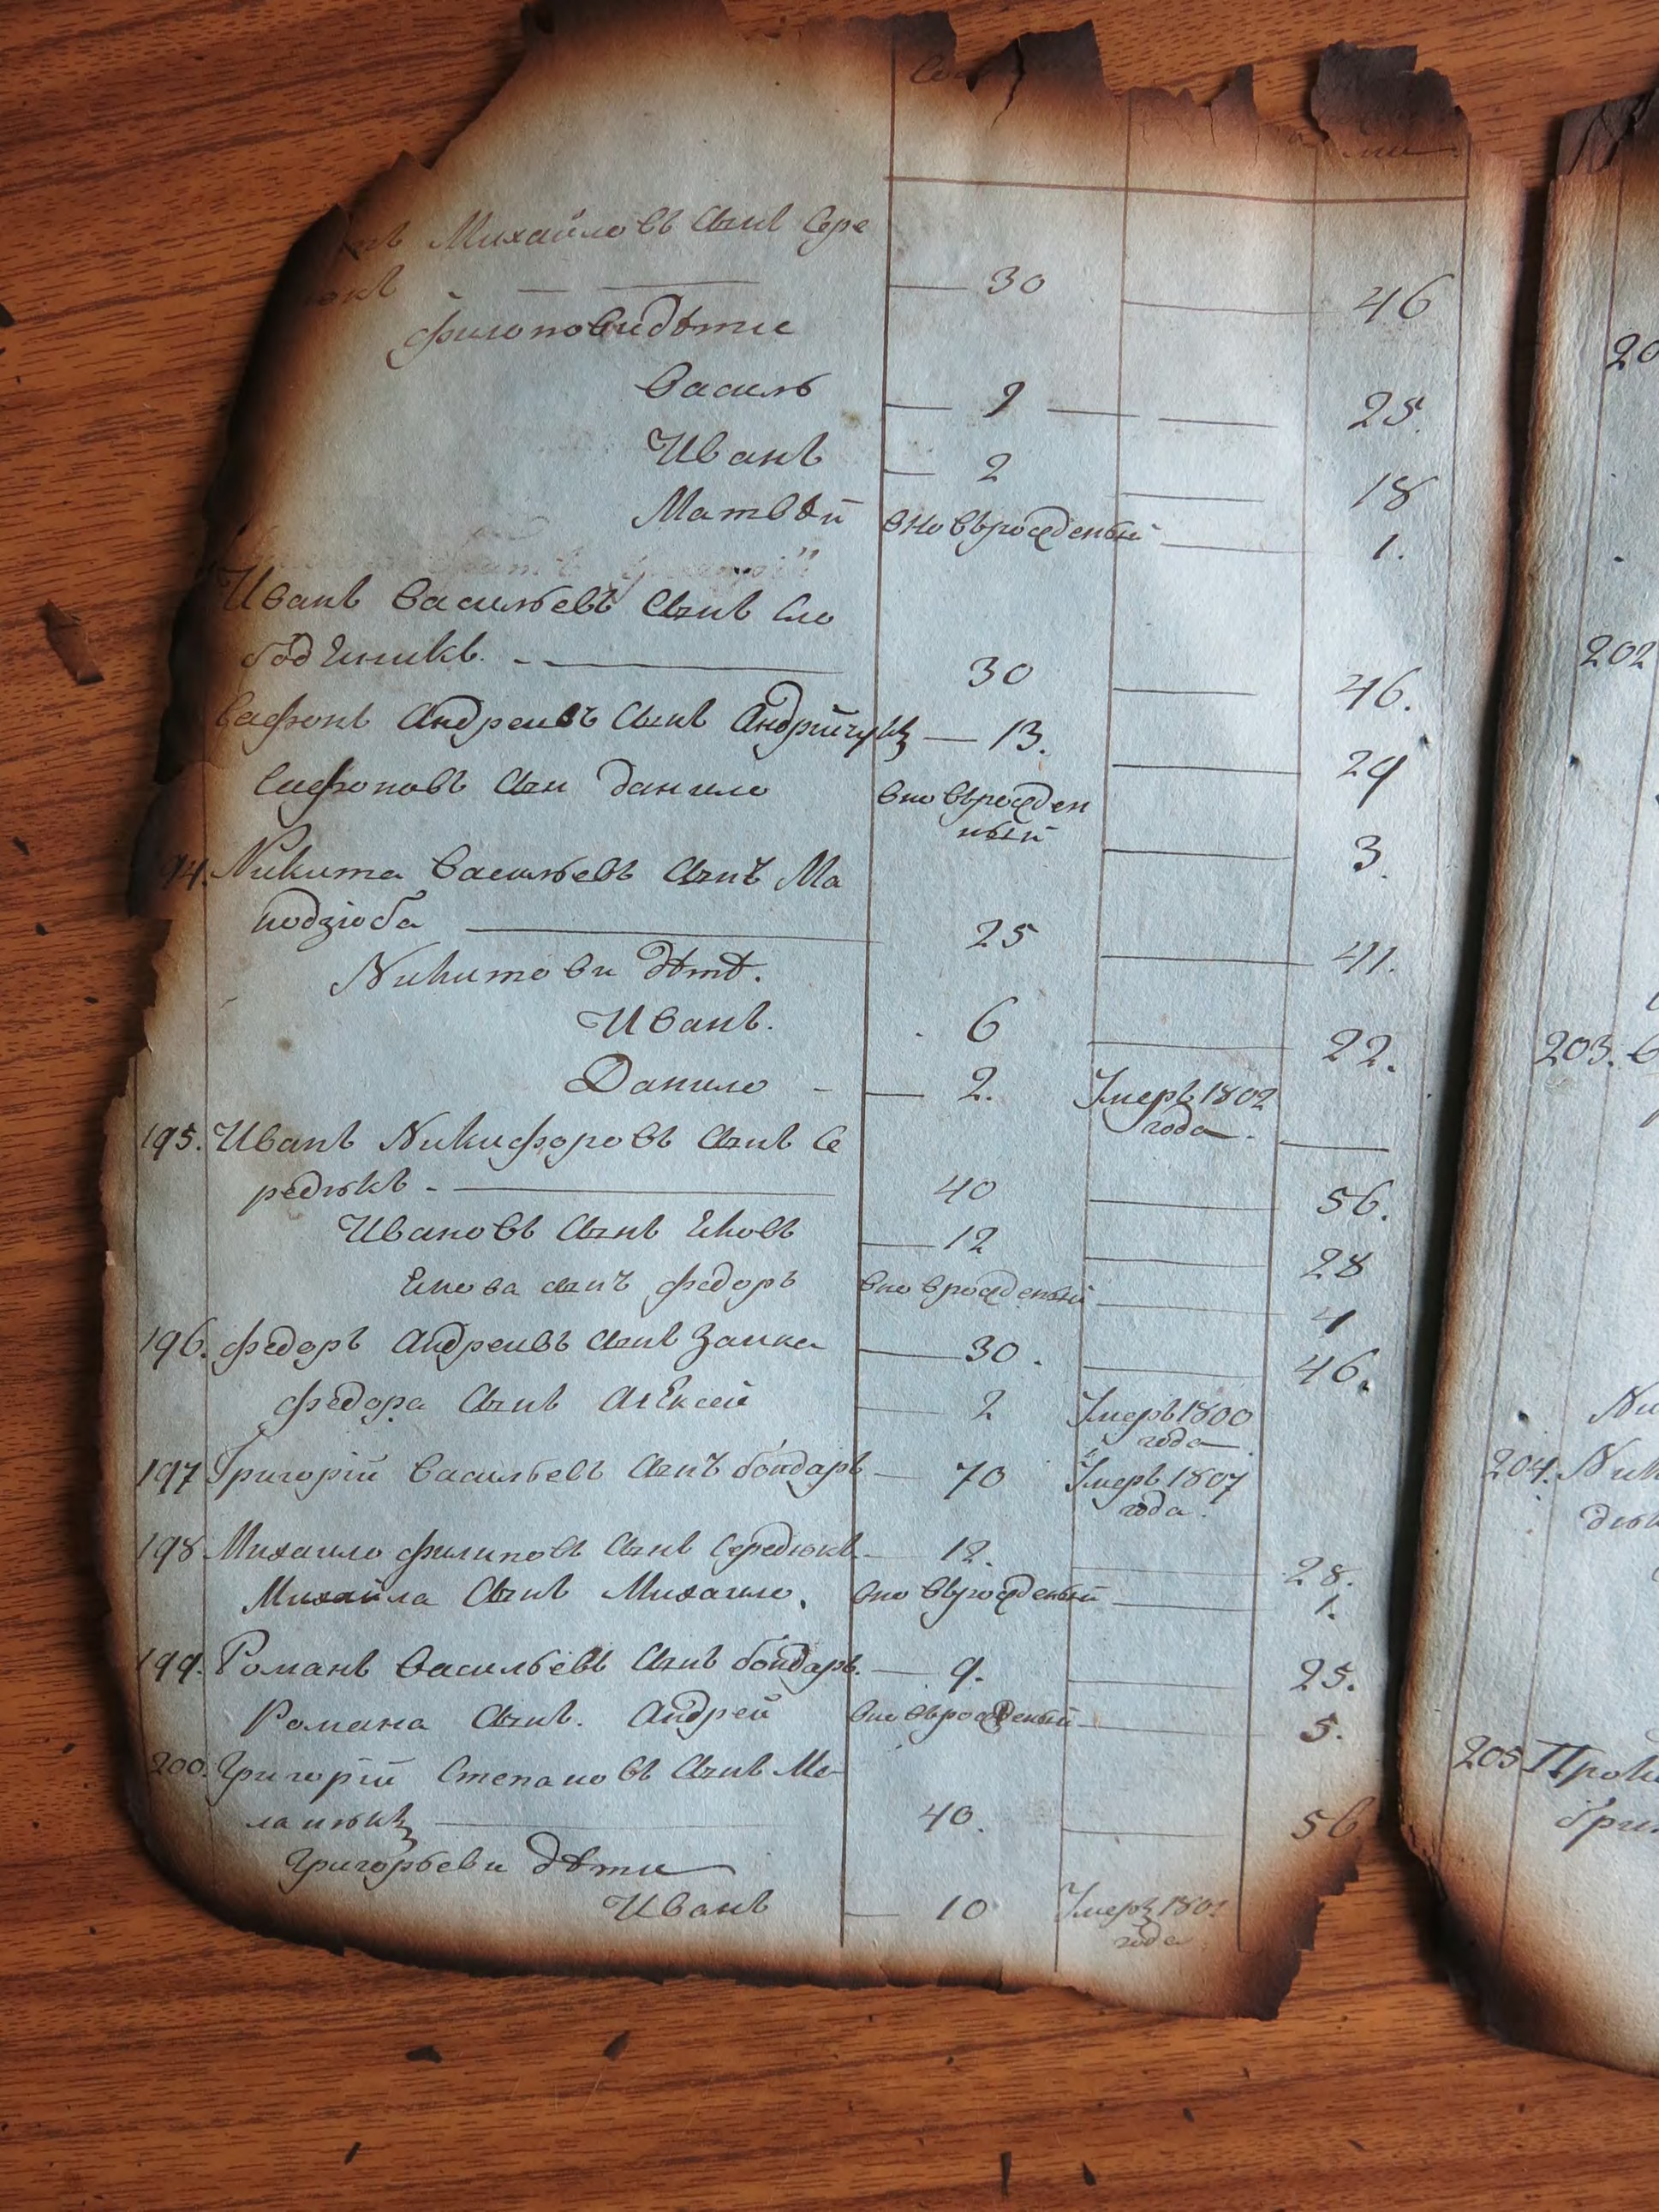 Михайловъ сынъ Сере
30 46
Филиповидѣти
Василь 9 25.
Иванъ 2 18
Матвѣй вновьрожденый 1.
Иванъ Васильевъ сынъ Сло
бодчникъ. 30 46.
Сафонъ Андреивъ сынъ Андрийчукъ 13. 29
Сафоновъ сын Данило вновьрожден
ный 3.
94. Никита Васильевъ сынъ Ма
нодзюба 25 41.
Никитови дѣтѣ.
Иванъ. 6 22.
Данило 2. Умеръ 1802
года.
195. Иванъ Никифоровъ сынъ Се
редюкъ 40 56.
Ивановъ сынъ Яковъ 12 28
Якова сынъ Федоръ вноврожденый 4
196. Федоръ Андреивъ сынъ Заика 30. 46.
Федора сынъ Алексей 2 Умеръ 1800
года.
197 Григорій Васильевъ сынъ бондарь 70 Умеръ 1807
года.
198 Михаило Филиповъ сынъ Середюкъ 12. 28.
Михайла сынъ Михаило. вновьрожденый 1.
199. Романъ Васильевъ сынъ бондарь. 9. 25.
Романа сынъ. Андрей вновьрожденый 5.
200. Григорій Степановъ сынъ Ме-
ланюкъ 40. 56
Григорьеви дѣти
Иванъ 10 Умеръ
года
20
202
203.
204. Ник
205 Прок